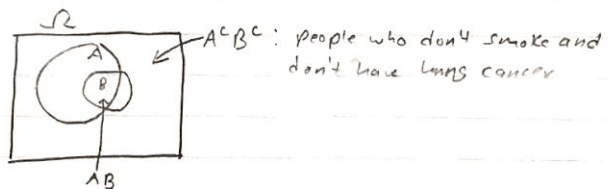 Ω
A
B
AB
AᶜBᶜ: people who don't smoke and
don't have lung cancer